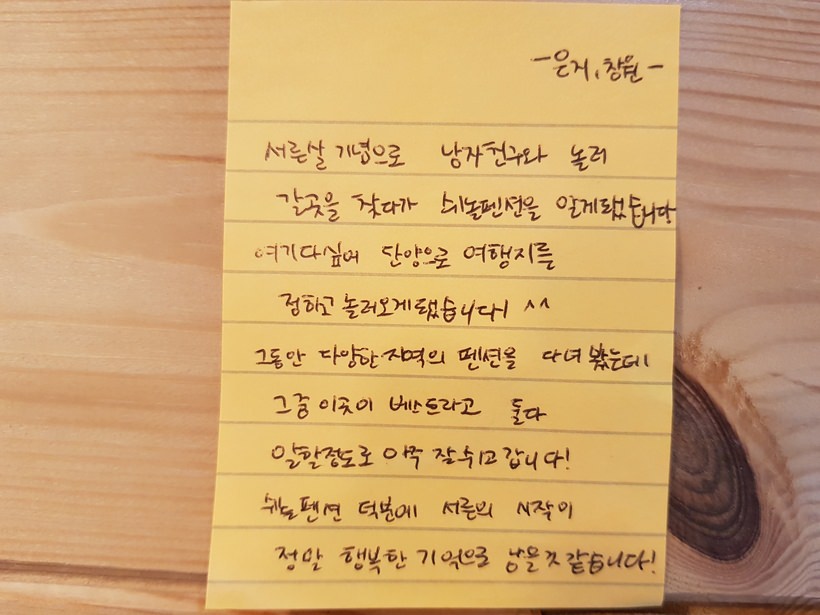 -은지, 창원-
서른살 기념으로 남자친구와 놀러
갈곳을 찾다가 쉬놀펜션을 알게됐습니다
여기다싶어 단양으로 여행지를
정하고 놀러오게됐습니다! ^^
그동안 다양한 지역의 펜션을 다녀봤는데
그중 이곳이 베스트라고 둘다
말할정도로 아주 잘 쉬고 갑니다!
쉬놀펜션 덕분에 서른의 시작이
정말 행복한 기억으로 남을것 같습니다!